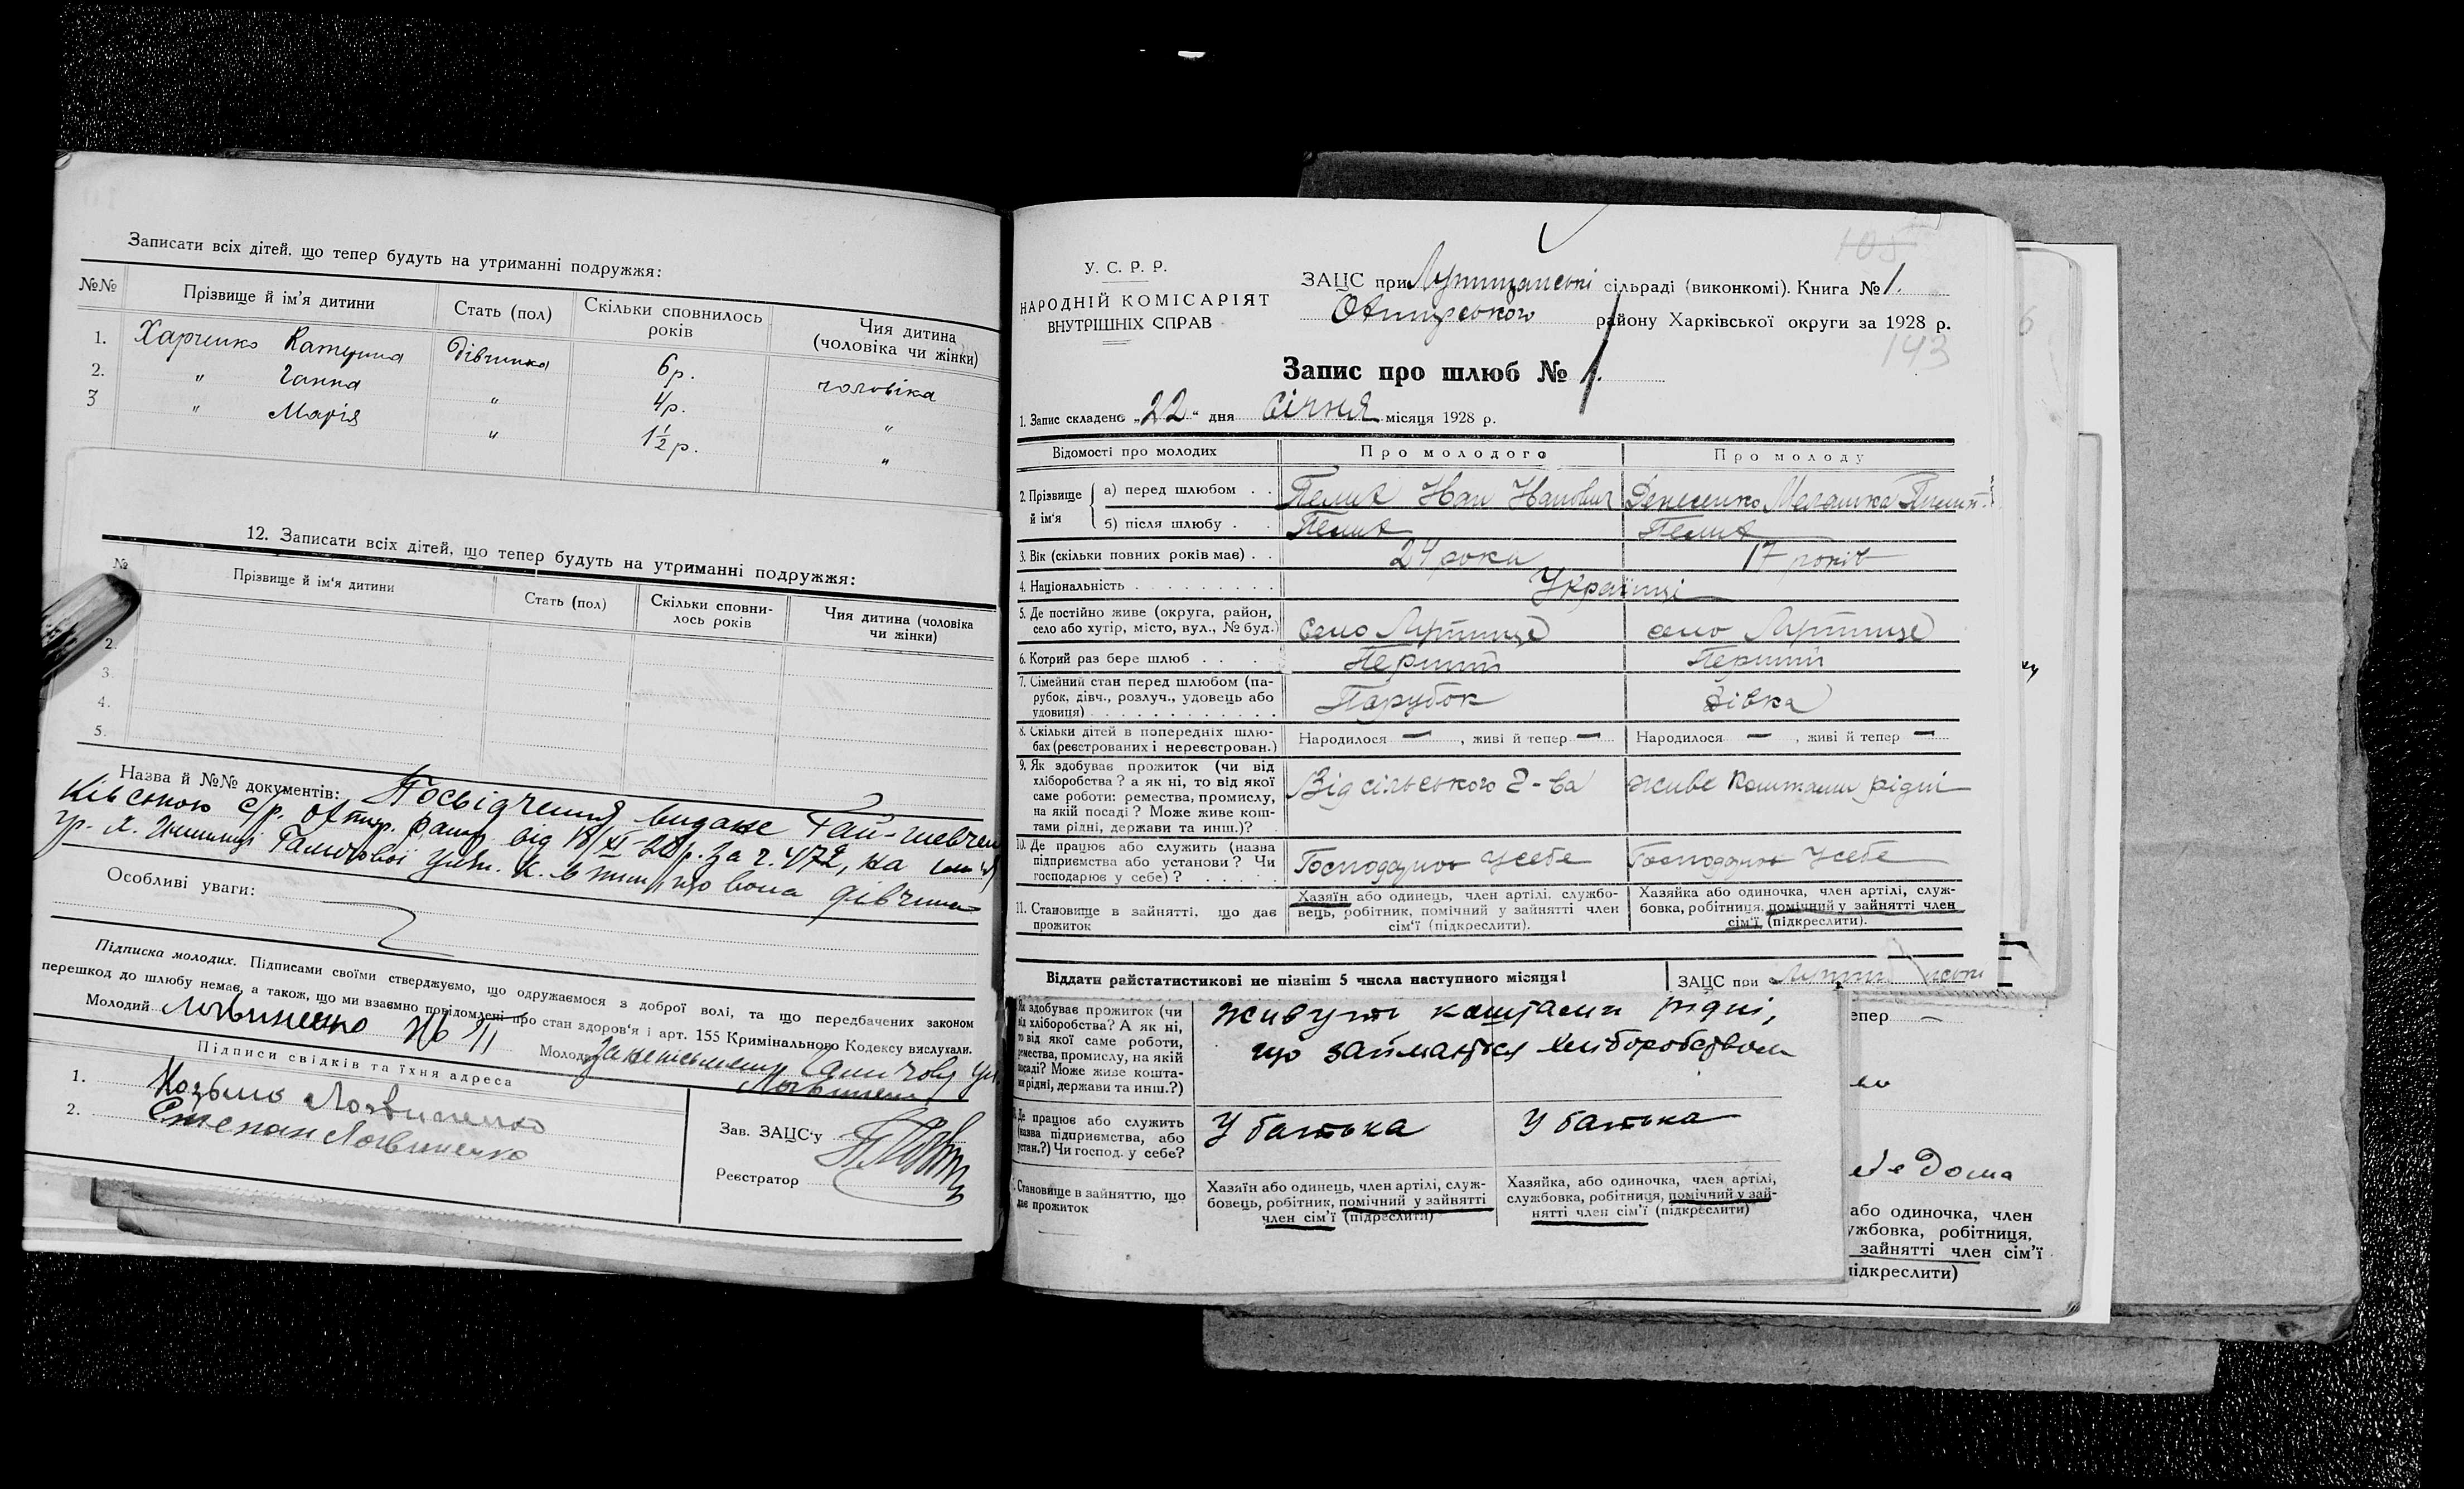 Записати всіх дітей, що тепер будуть на утриманні подружжя:
№№ Прізвище й ім'я дитини Стать (пол) Скільки сповнилось років Чия дитина (чоловіка чи жінки)
1. Харченко Катерина дівчинка 6 р. чоловіка
2. " Ганна " 4 р. "
3 " Марія " 1½ р. "
12. Записати всіх дітей, що тепер будуть на утриманні подружжя:
№ Прізвище й ім'я дитини Стать (пол) Скільки сповнилось років Чия дитина (чоловіка чи жінки)
2.
3.
4.
5.
Назва й №№ документів: Посвідчення видане Гай-шевчен
ківською с/р. Охтир. від 18/XI за ч. 472, на
що вона дівчина
Особливі уваги:
Підписка молодих. Підписами своїми стверджуємо, що одружаємося з доброї волі, та що передбачених законом
перешкод до шлюбу немає, а також, що ми взаємно повідомлені про стан здоров'я і арт. 155 Кримінального Кодексу вислухали.
Молодий Логвиненко Молода
Підписи свідків та їхня адреса
1. Козьма Логвиненко
2. Степан Логвиненко
Зав. ЗАЦС'у
Реєстратор
105
У. С. Р. Р.
НАРОДНІЙ КОМІСАРІЯТ
ВНУТРІШНІХ СПРАВ
ЗАЦС при сільраді (виконкомі). Книга № 1.
Охтирського району Харківської округи за 1928 р.
143
Запис про шлюб № 1.
1. Запис складено „22“ дня Січня місяця 1928 р.
Відомості про молодих Про молодого Про молоду
2. Прізвище й ім'я а) перед шлюбом . . Пелих Іван Іванович Денесенко Меланка
б) після шлюбу . Пелих Пелих
3. Вік (скільки повних років має) . . 24 роки 17 років
4. Національність Українці
5. Де постійно живе (округа, район, село або хутір, місто, вул., № буд.) село Лутище село Лутище
6. Котрий раз бере шлюб . . . Перший Перший
7. Сімейний стан перед шлюбом (парубок, дівч., розлуч., удовець або удовиця) Парубок дівка
8. Скільки дітей в попередніх шлюбах (реєстрованих і нереєстрован.) Народилося — , живі й тепер — Народилося — , живі й тепер —
9. Як здобуває прожиток (чи від хліборобства? а як ні, то від якої саме роботи: ремества, промислу, на якій посаді? Може живе коштами рідні, держави та инш.)? Від сільського г-ва живе коштами рідні
10. Де працює або служить (назва підприємства або установи? Чи господарює у себе)? Господарює у себе Господарює у себе
11. Становище в зайнятті, що дає прожиток Хазяїн або одинець, член артілі, службовець, робітник, помічний у зайнятті член сім'ї (підкреслити). Хазяйка або одиночка, член артілі, службовка, робітниця, помічний у зайнятті член сім'ї (підкреслити).
Віддати райстатистикові не пізніш 5 числа наступного місяця! ЗАЦС при
здобуває прожиток (чи від хліборобства? А як ні, то від якої саме роботи, ремества, промислу, на якій посаді? Може живе коштами рідні, держави та инш.?) живуть коштами рідні,
що займається хліборобством
Де працює або служить (назва підприємства, або устан.?) Чи господ. у себе? У батька У батька
Становище в зайняттю, що дає прожиток Хазяїн або одинець, член артілі, службовець, робітник, помічний у зайнятті член сім'ї (підреслити) Хазяйка, або одиночка, член артілі, службовка, робітниця, помічний у зайнятті член сім'ї (підкреслити)
епер —
дома
або одиночка, член
ужбовка, робітниця,
зайнятті член сім'ї
підкреслити)